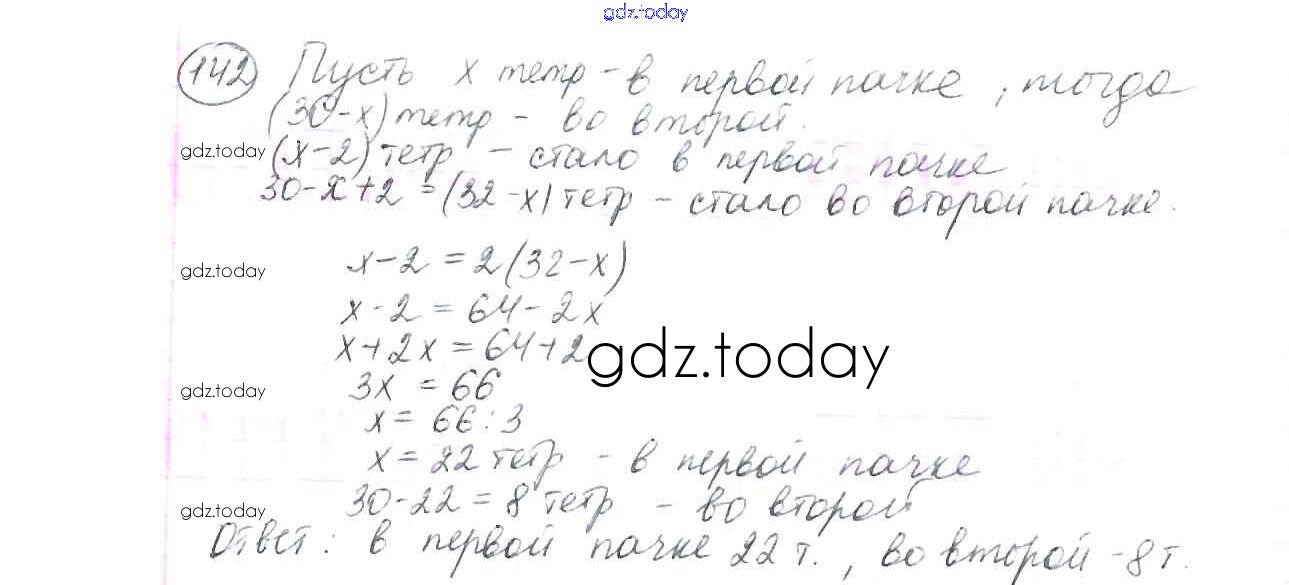 gdz.today
142 Пусть x тетр - в первой пачке, тогда
(30-x) тетр - во второй.
gdz.today (x-2) тетр - стало в первой пачке
30-x+2 = (32-x) тетр - стало во второй пачке.
gdz.today x-2 = 2(32-x)
x-2 = 64-2x
x+2x = 64+2 gdz.today
gdz.today 3x = 66
x = 66:3
x = 22 тетр - в первой пачке
gdz.today 30-22 = 8 тетр - во второй
Ответ: в первой пачке 22 т., во второй -8 т.